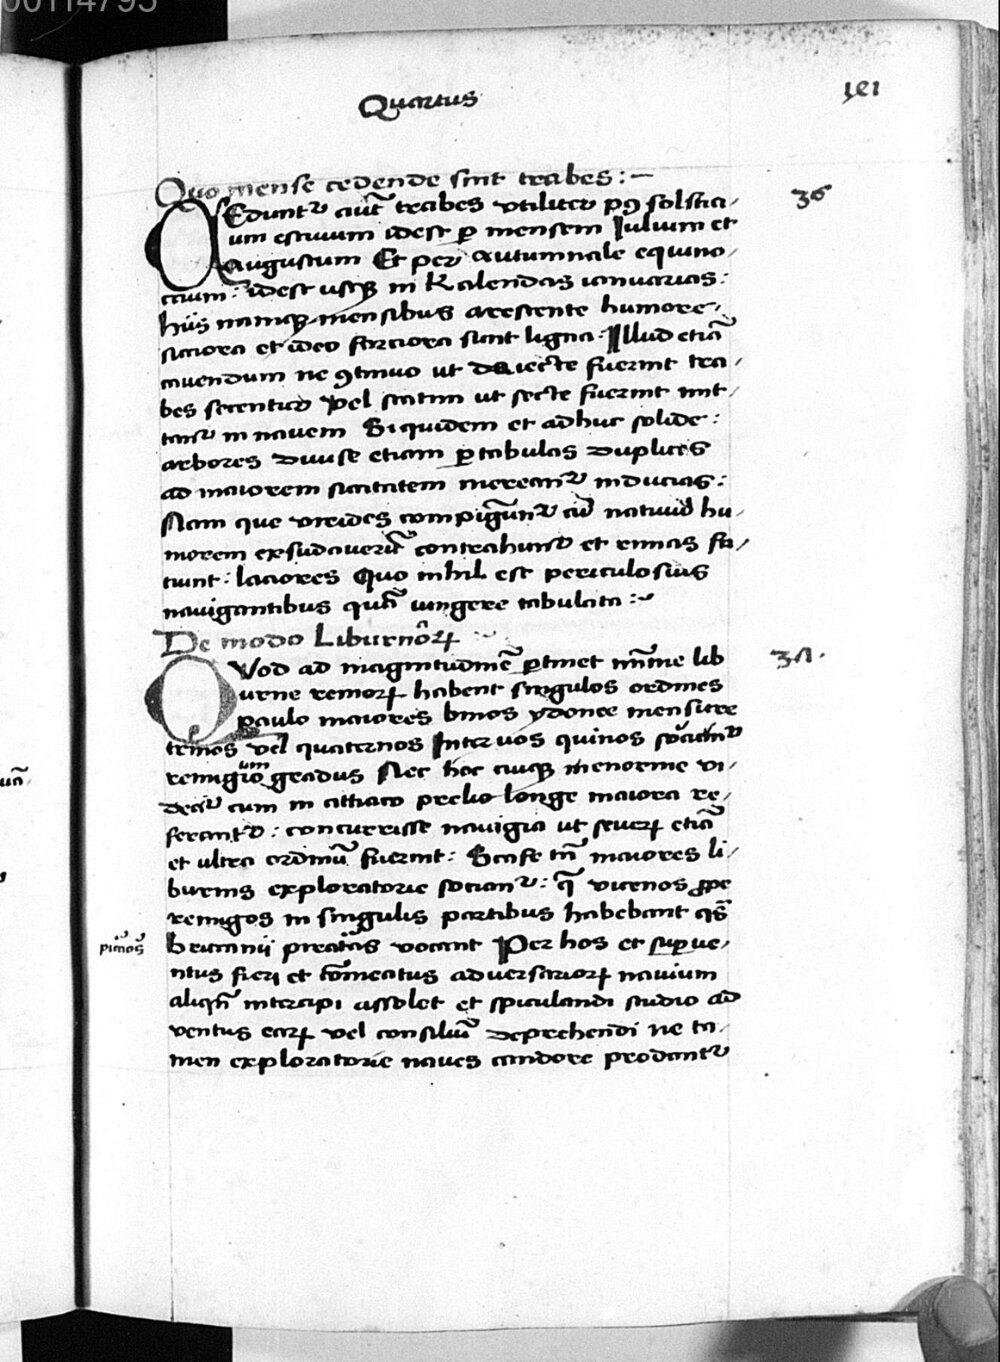 00114795
Quartus
Quo mense cedende sint trabes :~
36
CEduntᷣ aut̄ trabes utiliter pꝯ solsticı/
um estiuum idest ꝑ mensem Iulium et
augustum Et per autumnale equino/
ctium : idest usqꝫ in Kalendas ianuarias :
hiis namqꝫ mensibus arescente humore/
sicciora et ideo forciora sunt ligna. Illud etiā
cauendum ne ꝯtinuo ut deiecte fuerint tra/
bes secentur Vel statim ut secte fuerint mit/
tantᷣ in nauem Siquidem et adhuc solide :
arbores diuise etiam ꝑ tabulas duplices
ad maiorem siccitatem mereantᷣ inducias :
Nam que virides compiguntᷣ cū natiuū hu/
morem exsudauerīt contrahuntᷣ et rimas fa/
tiunt : laciores Quo nihil est periculosius
nauigantibus quā uingere tabulata :~
De modo Liburnōꝝ
37.
QVod ad magnitudinē ꝑtinet mīme lib
urne remoꝝ habent singulos ordines
paulo maiores binos ydonee mensure
ternos vel quaternos Interuos quinos sociuntᷣ
remigio um gradus Nec hoc cuiqꝫ inenorme vi/
deatᷣ cum in attiaco prelio longe maiora re/
ferantᷣ : concurrisse nauigia ut seuoꝝ etiā
et ultra ordinū fuerint : Scafe tn̄ maiores li/
burnis exploratorie sociantᷣ : q̄ vicenos ꝓpe
remigos in singulis partibus habebant qs̄
britanii picatas vocant Per hos et supue/
ntus fieri et cōmeatus aduersarioꝝ nauium
aliqn̄ intercipi assolet et spiculandi studio ad
uentus eaꝝ vel consiliū deprehendi ne ta/
men exploratorie naues candore prodantᷣ